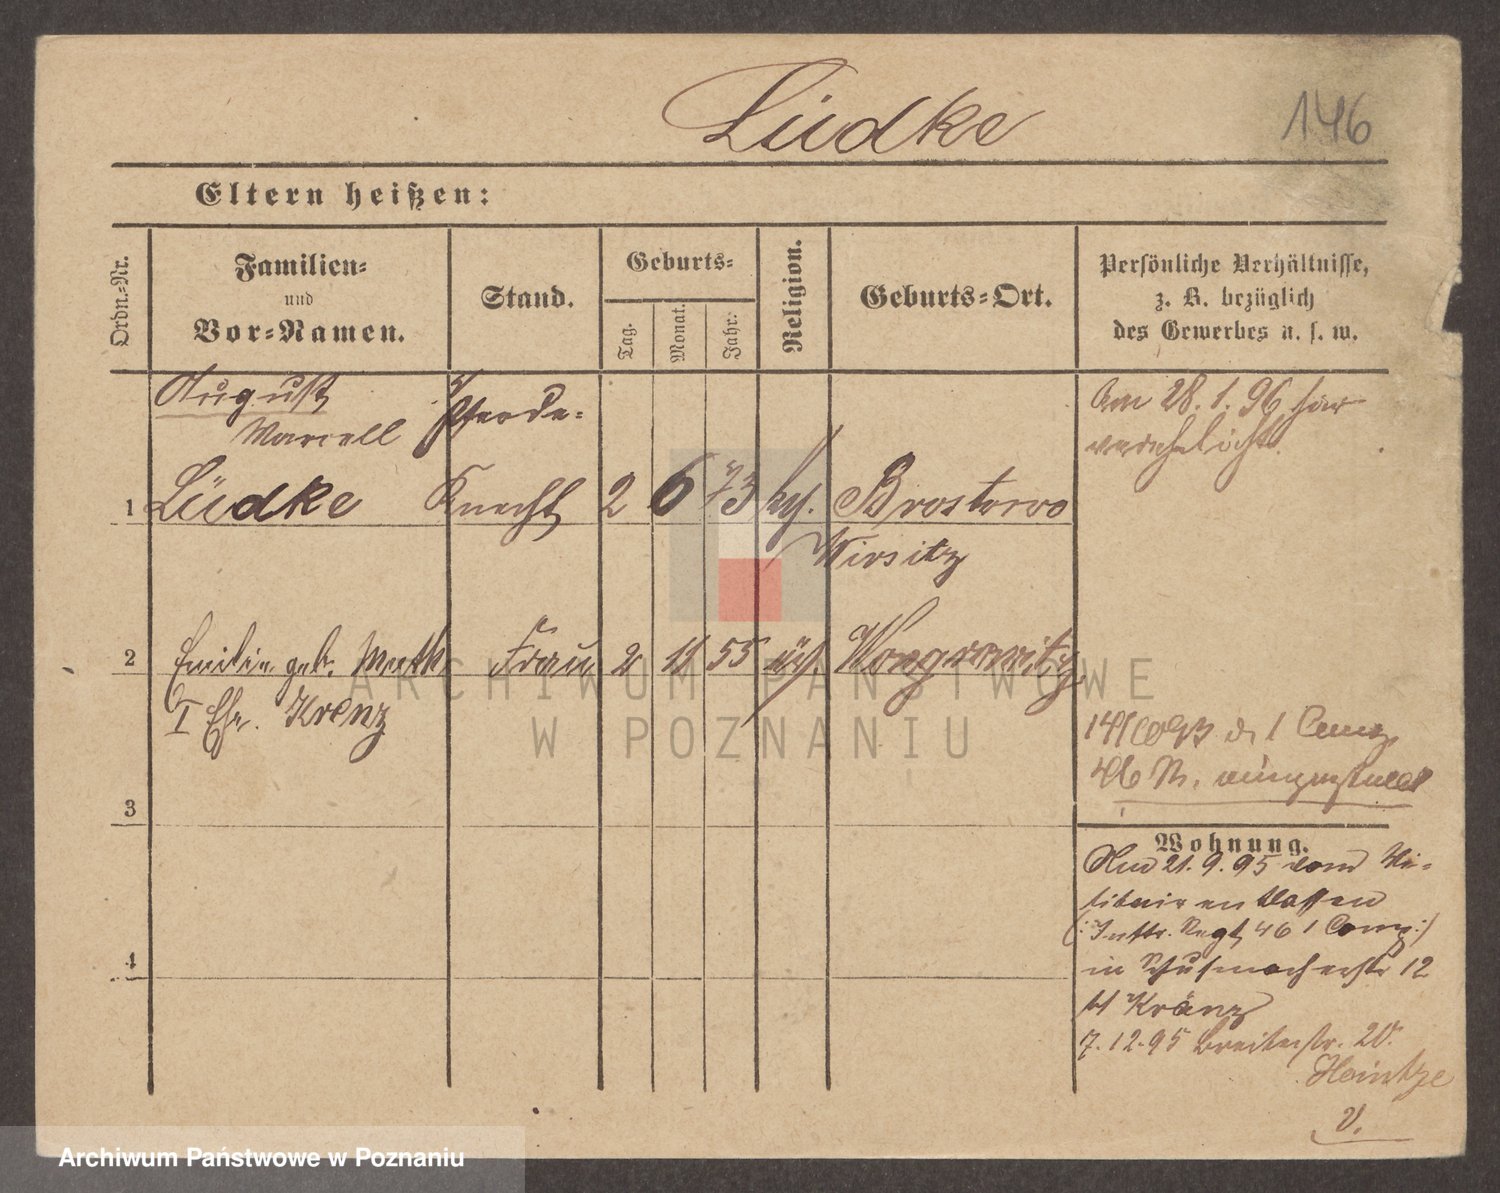 Lüdke
146
Eltern heißen:
Ordn.-Nr.
Familien-
und
Vor-Namen.
Stand.
Geburts-
Tag.
Monat.
Jahr.
Religion.
Geburts-Ort.
Persönliche Verhältnisse,
z. B. bezüglich
des Gewerbes u. s. w.
August
Marcell
Pferde-
1 Lüdke Knecht 2 6 73 Brostowo
Wirsitz
Am 28.1.96 hier
verehelicht.
2 Emilie geb. Muth Frau 2 11 55 Wongrowitz
I Ehe. Krenz
1 Comp
46 R. eingestellt
3
Wohnung.
21.9.95 vom Mi-
litair entlassen
(: Inftr. Regt 46 1 Comp :)
in Schuhmacherstr 12
4
bei Kränz
7.12.95 Breitestr. 20.
Heintze
V.
ARCHIWUM PAŃSTWOWE
W POZNANIU
Archiwum Państwowe w Poznaniu